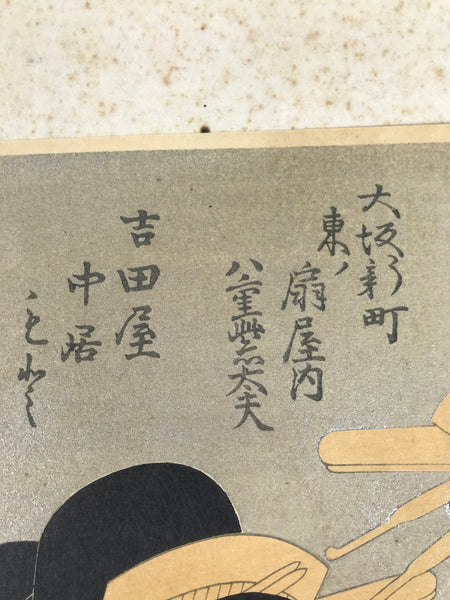 大坂新町
東ノ
扇屋内
八重紫太夫
吉田屋
中居